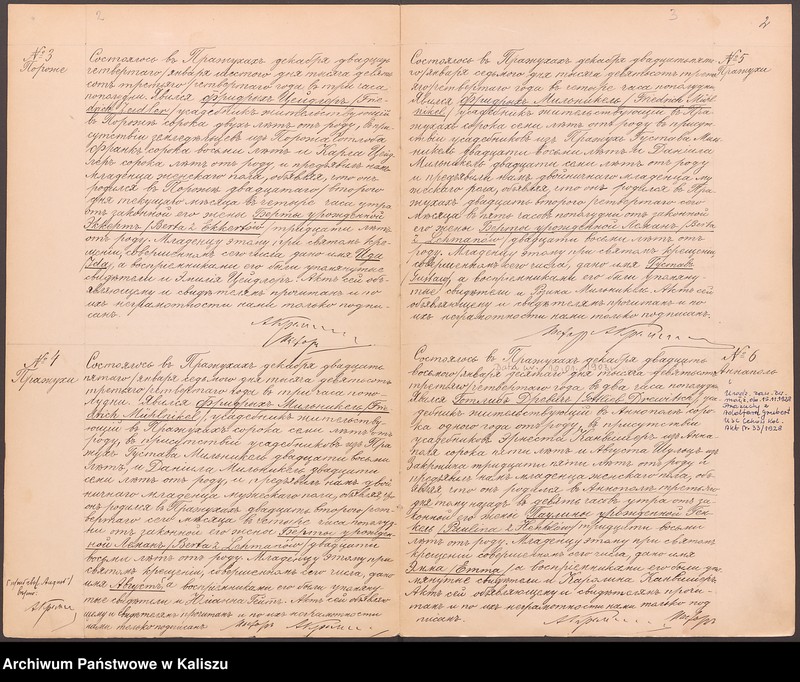 2
№ 3
Пороже
Состоялось въ Пражухахъ декабря двадцать
четвертаго /января шестого дня тысяча девять
сотъ третьяго /четвертаго года въ три часа
пополудни. Явился Фридрихъ Цейдлеръ /Frie-
drich Zeidler/ усадебникъ жительствующій
въ Пороже сорока двухъ лѣтъ отъ роду, въ при-
сутствіи усадебниковъ изъ Пороже Готлоба
Франкъ сорока восьми лѣтъ и Карла Цейд-
леръ сорока лѣтъ отъ роду, и предъявилъ намъ
младенца женскаго пола, объявляя, что онъ
родился въ Пороже двадцатаго /второго
дня текущаго мѣсяца въ четыре часа утра
отъ законной его жены Берты урожденной
Эккертъ /Berta z Ekkertów/ тридцати лѣтъ
отъ роду. Младенцу этому при святомъ кре-
щеніи, совершенномъ сего числа дано имя Ида
/Ida/, а воспріемниками его были упомянутые
свидѣтели и Эмилія Цейдлеръ. Актъ сей объ-
являющему и свидѣтелямъ прочитанъ и по
ихъ неграмотности нами только подпи-
санъ.
№ 4
Пражухи
Состоялось въ Пражухахъ декабря двадцать
пятаго /января седьмого дня тысяча девятьсотъ
третьяго /четвертаго года въ четыре часа попо-
лудни. Явился Фридрихъ Мильникель /Frie-
drich Mühlnikel/ усадебникъ жительству-
ющій въ Пражухахъ сорока семи лѣтъ отъ
роду, въ присутствіи усадебниковъ изъ Пра-
жухъ Густава Мильникель двадцати восьми
лѣтъ, и Даніила Мильникель двадцати
семи лѣтъ отъ роду, и предъявилъ намъ двой-
ничнаго младенца мужескаго пола, объявляя что
онъ родился въ Пражухахъ двадцать второго /чет-
вертаго сего мѣсяца въ четыре часа пополуд-
ни отъ законной его жены Берты урожден-
ной Леманъ /Berta z Lehmanów/ двадцати
восьми лѣтъ отъ роду. Младенцу этому при
святомъ крещеніи, совершенномъ сего числа, дано
имя Августъ а воспріемниками его были упомяну-
тые свидѣтели и Юліанна Гейтъ. Актъ сей объявляю-
щему и свидѣтелямъ прочитанъ и по ихъ неграмотности
нами только подписанъ.
3
2
№ 5
Пражухи
Состоялось въ Пражухахъ декабря двадцать пята-
го /января седьмого дня тысяча девятьсотъ треть-
яго /четвертаго года въ четыре часа пополудни.
Явился Фридрихъ Мильникель /Friedrich Mühl-
nikel/ усадебникъ жительствующій въ Пра-
жухахъ сорока семи лѣтъ отъ роду, въ присут-
ствіи усадебниковъ изъ Пражухъ Густава Миль-
никель двадцати восьми лѣтъ и Даніила
Мильникель двадцати семи лѣтъ отъ роду
и предъявилъ намъ двойничнаго младенца му-
жескаго пола, объявляя, что онъ родился въ Пра-
жухахъ двадцать второго /четвертаго сего
мѣсяца въ пять часовъ пополудни отъ законной
его жены Берты урожденной Леманъ /Berta
z Lehmanów/ двадцати восьми лѣтъ отъ
роду. Младенцу этому при святомъ крещеніи,
совершенномъ сего числа, дано имя Густавъ
/Gustaw/, а воспріемниками его были упомяну-
тые свидѣтели и Мильникель. Актъ сей
объявляющему и свидѣтелямъ прочитанъ и по
ихъ неграмотности нами только подписанъ.
№ 6
Аннаполь
Состоялось въ Пражухахъ декабря двадцать
восьмого /января десятаго дня тысяча девятьсотъ
третьяго /четвертаго года въ два часа пополудни.
Явился Готлибъ /Gottlieb уса-
дебникъ жительствующій въ Аннаполѣ соро-
ка одного года отъ роду, въ присутствіи
усадебниковъ Эрнеста изъ Анна-
поля сорока пяти лѣтъ и Августа Шульцъ изъ
тридцати пяти лѣтъ отъ роду и
предъявилъ намъ младенца женскаго пола, объ-
являя что онъ родился въ Аннаполѣ
дня тому назадъ въ девять часовъ утра отъ за-
конной его жены Паулины урожденной
/Paulina z тридцати восьми
лѣтъ отъ роду. Младенцу этому при святомъ
крещеніи совершенномъ сего числа, дано имя
Эмма /Emma/ а воспріемниками его были упо-
мянутые свидѣтели и Каролина
Актъ сей объявляющему и свидѣтелямъ прочи-
танъ и по ихъ неграмотности нами только под
писанъ.
Akt Nr. 33/1928
Archiwum Państwowe w Kaliszu